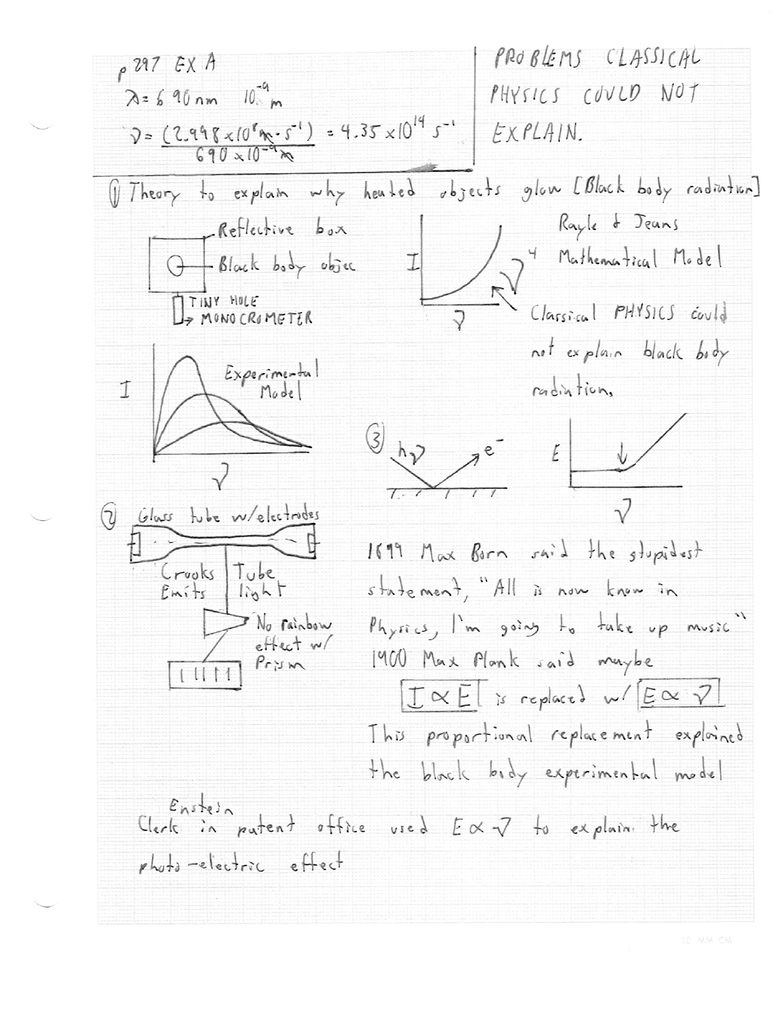 p 297 EX A
λ = 690 nm 10⁻⁹ m
ν = (2.998 x 10⁸ m · s⁻¹) = 4.35 x 10¹⁴ s⁻¹
690 x 10⁻⁹ m
PROBLEMS CLASSICAL
PHYSICS COULD NOT
EXPLAIN.
① Theory to explain why heated objects glow [Black body radiation]
Reflective box
Black body objec
TINY HOLE
MONOCROMETER
I
ν⁴
ν
Rayle & Jeans
Mathematical Model
Classical PHYSICS could
not explain black body
radiation.
I
Experimental
Model
ν
③
hν
e⁻
E
ν
② Glass tube w/electrodes
Crooks Tube
Emits light
No rainbow
effect w/
Prism
1899 Max Born said the stupidest
statement, "All is now know in
Physics, I'm going to take up music"
1900 Max Plank said maybe
I ∝ E is replaced w/ E ∝ ν
This proportional replacement explained
the black body experimental model
Enstein
Clerk in patent office used E ∝ ν to explain the
photo-electric effect
10 MM CM